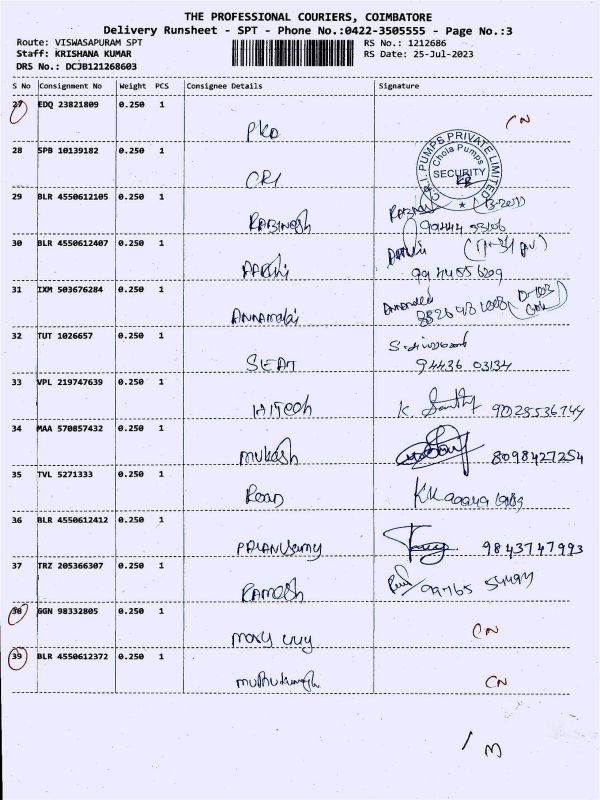 THE PROFESSIONAL COURIERS, COIMBATORE
Delivery Runsheet - SPT - Phone No.:0422-3505555 - Page No.:3
Route: VISWASAPURAM SPT RS No.: 1212686
Staff: KRISHANA KUMAR RS Date: 25-Jul-2023
DRS No.: DCJB121268603
S No Consignment No Weight PCS Consignee Details Signature
27 EDQ 23821809 0.250 1
CN
PKD
28 SPB 10139182 0.250 1
C.R.I. PUMPS PRIVATE LIMITED
Chola Pumps
SECURITY
CRI
29 BLR 4550612105 0.250 1
30 BLR 4550612407 0.250 1
31 IXM 503676284 0.250 1
Annamalai
32 TUT 1026657 0.250 1
SEAT 94436 03134
33 VPL 219747639 0.250 1
Hitech K.
34 MAA 570857432 0.250 1
Mukesh 8098427254
35 TVL 5271333 0.250 1
36 BLR 4550612412 0.250 1
9843747993
37 TRZ 205366307 0.250 1
Ramesh
38 GGN 98332805 0.250 1
CN
39 BLR 4550612372 0.250 1
CN